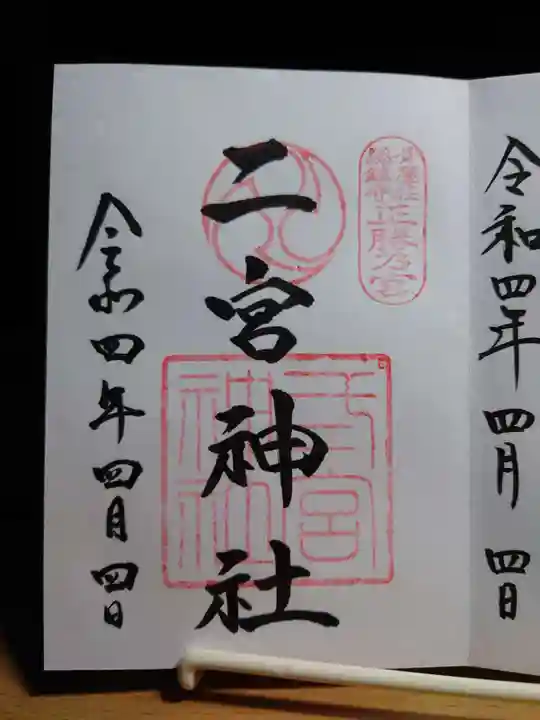 令和四年 四月 四日
正勝乃宮
二宮神社
二宮
神社
令和四年四月四日